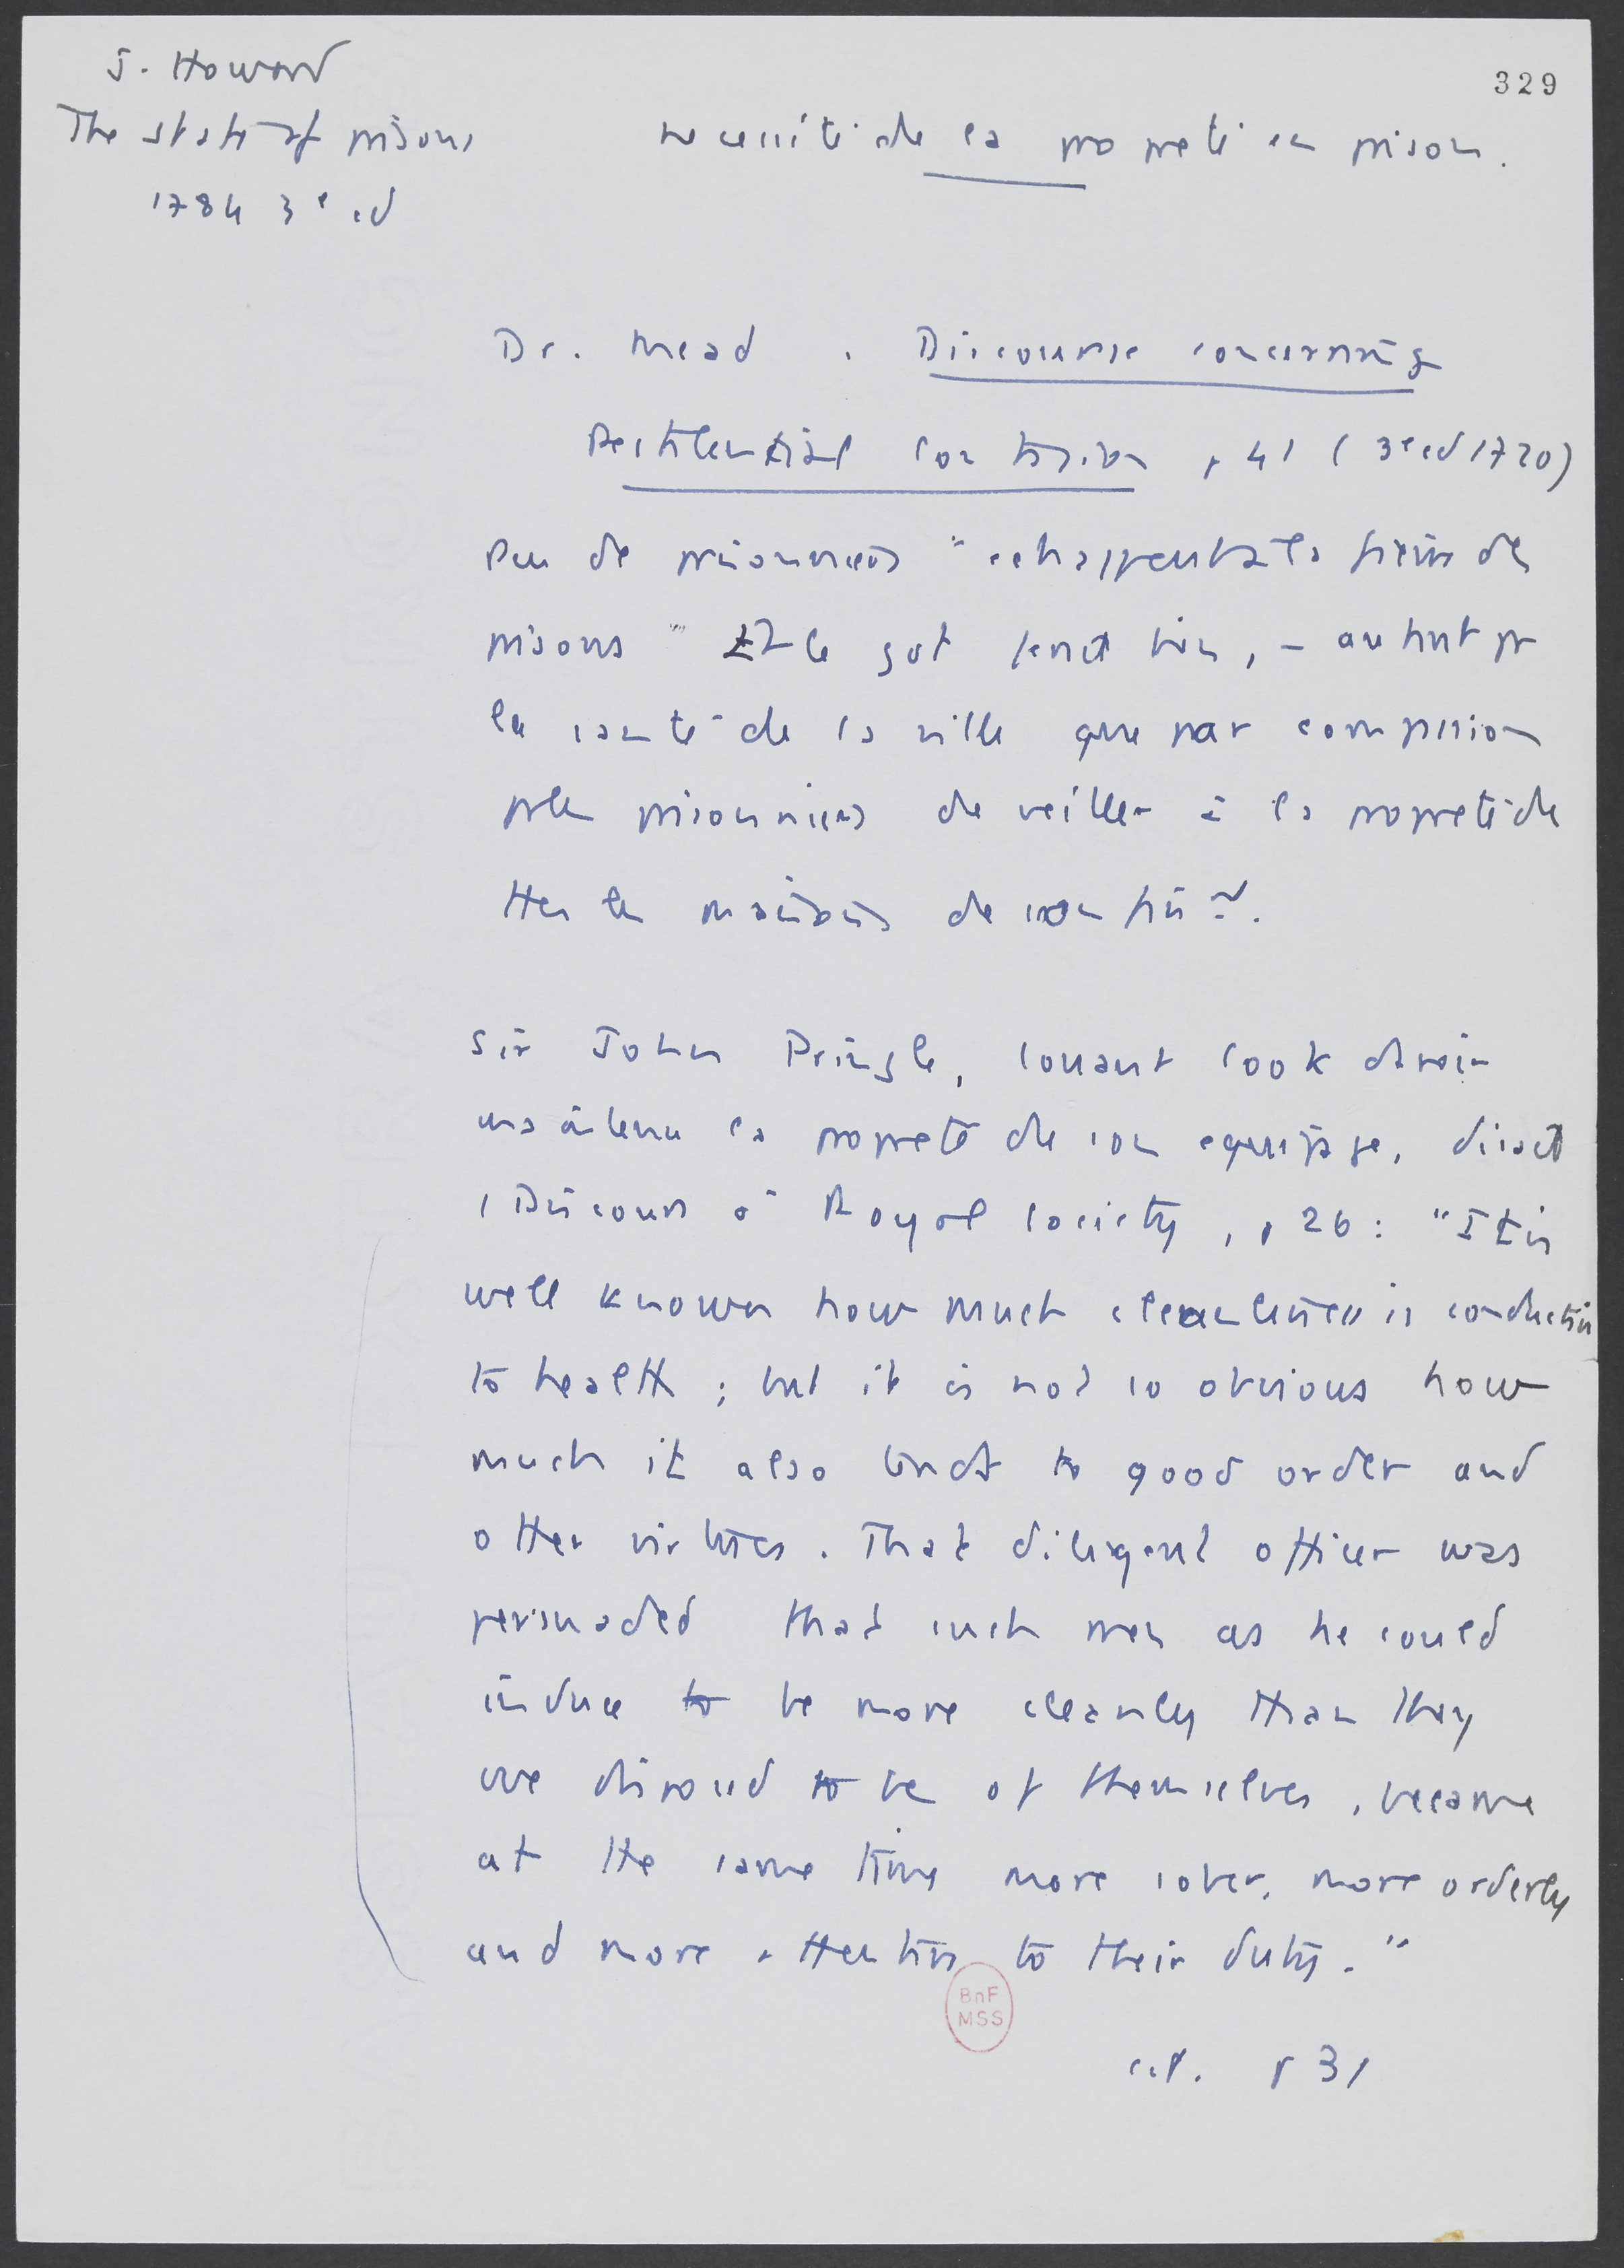 J. Howard
329
The state of prisons
nécessité de la propreté en prison.
1784 3e ed
Dr. Mead. Discourse concerning
Pestilential Contagion p 41 (3e ed 1720)
Peu de prisonniers "echappent à la fièvre des
prisons" Et le gvt ferait bien, - autant pr
la santé de la ville que par compassion
pr les prisonniers de veiller à la propreté de
ttes les maisons de
Sir John Pringle, louant Cook d'avoir
maintenu la propreté de son equipage, disait
(Discours à Royal Society, p 26: "It is
well known how much cleanliness is conductive
to health; but it is not so obvious how
much it also tends to good order and
other virtues. That diligent officer was
persuaded that such men as he could
induce to be more cleanly than they
were disposed to be of themselves, became
at the same time more sober, more orderly
and more attentive to their duty."
BnF
MSS
p 31